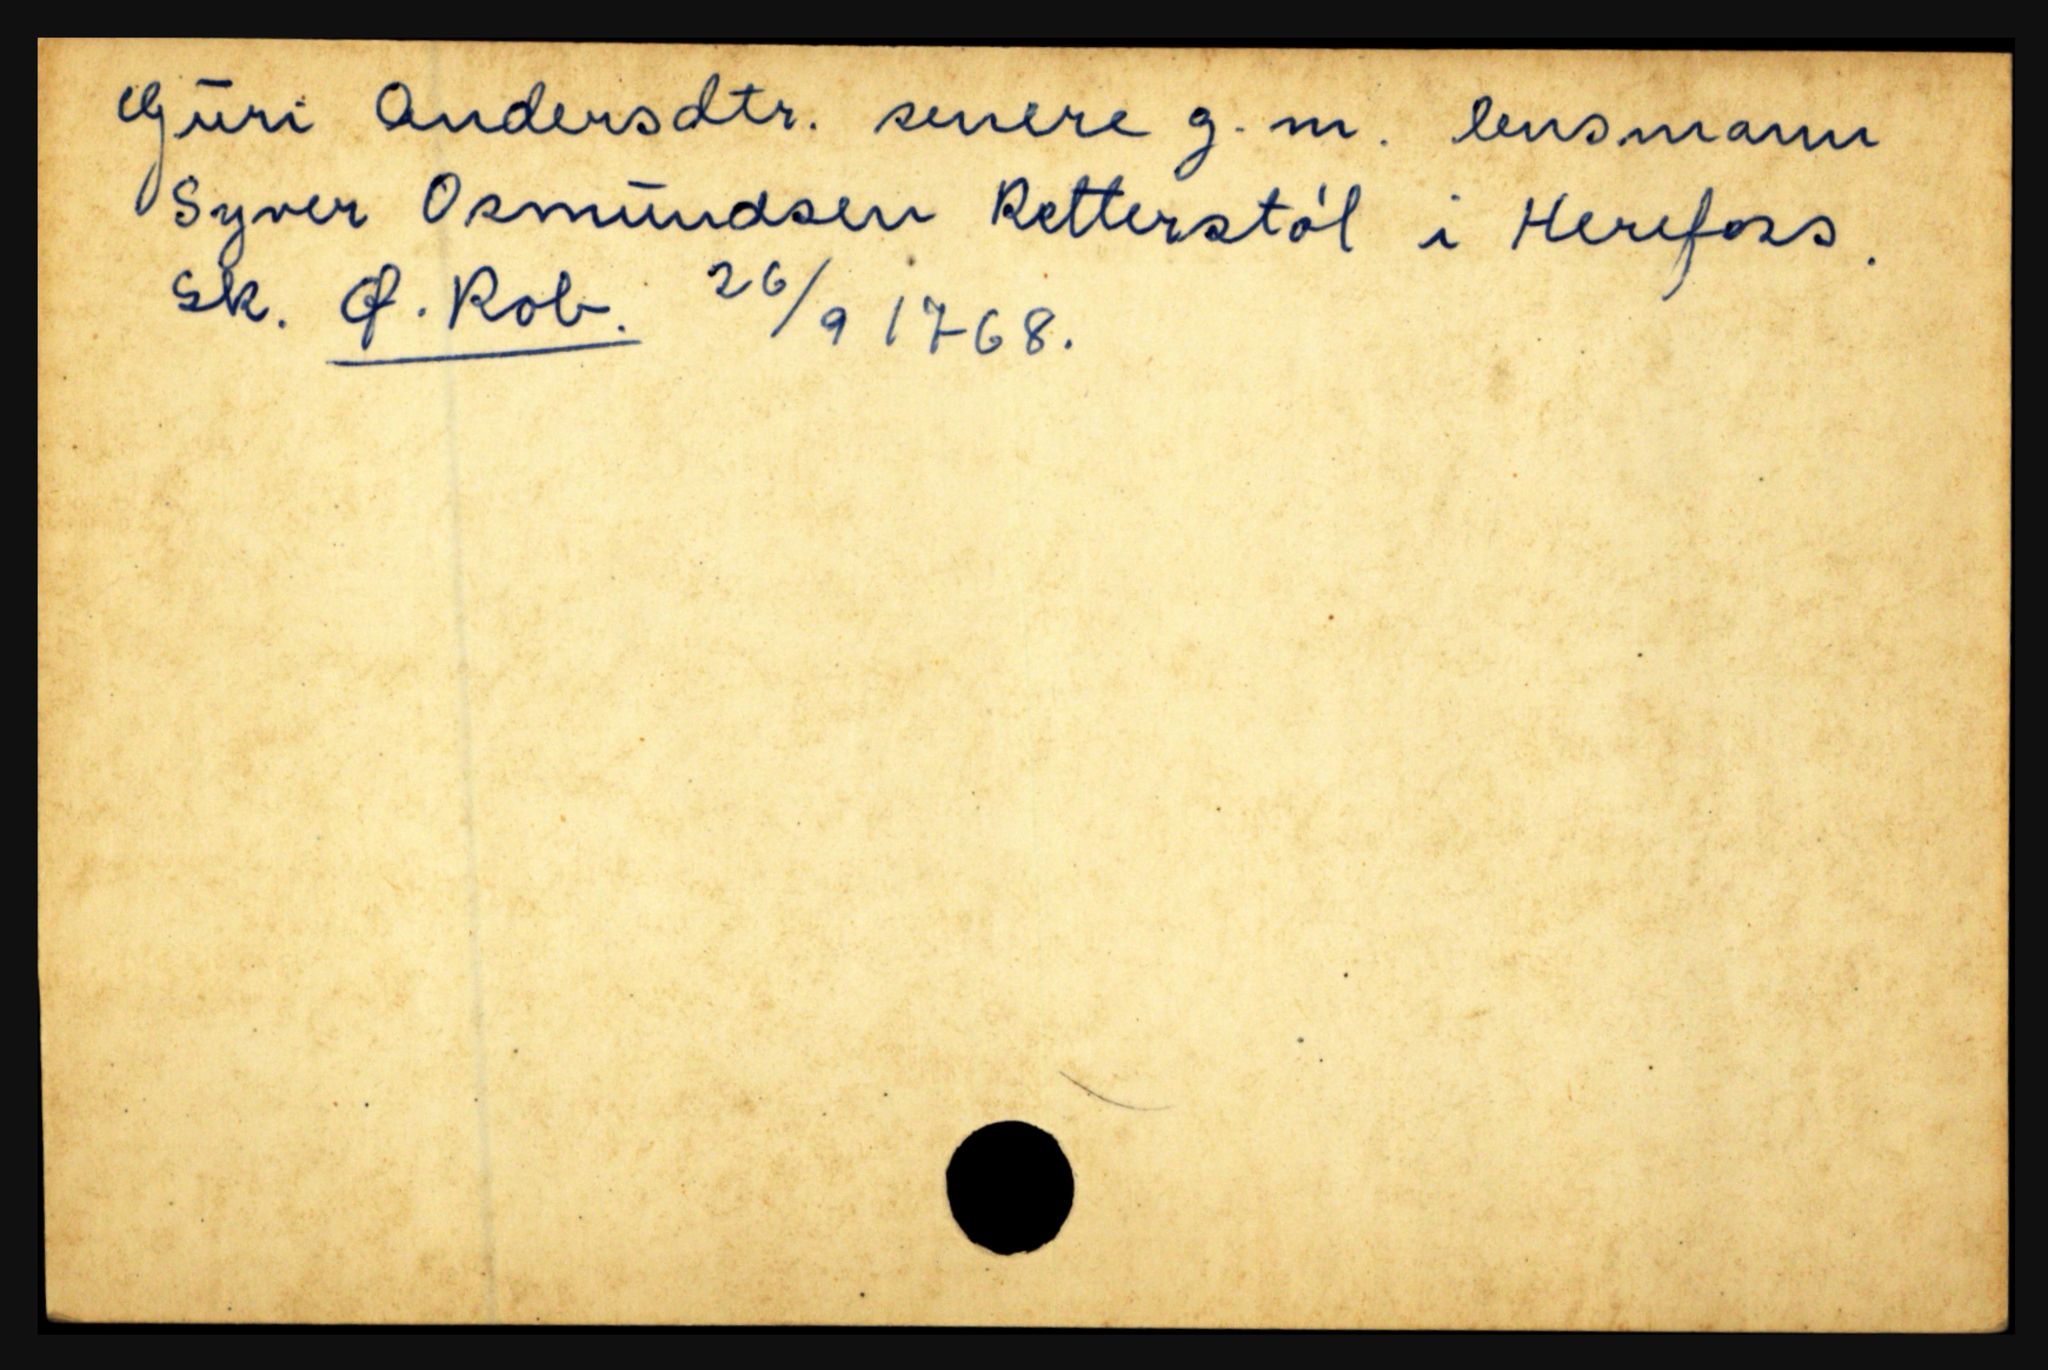 Gūri Andersdtr. senere g. m. lensmann
Syver Osmūndsen Retterstøl i Herefoss.
Sk. Ø. Rob. 26/9 1768.